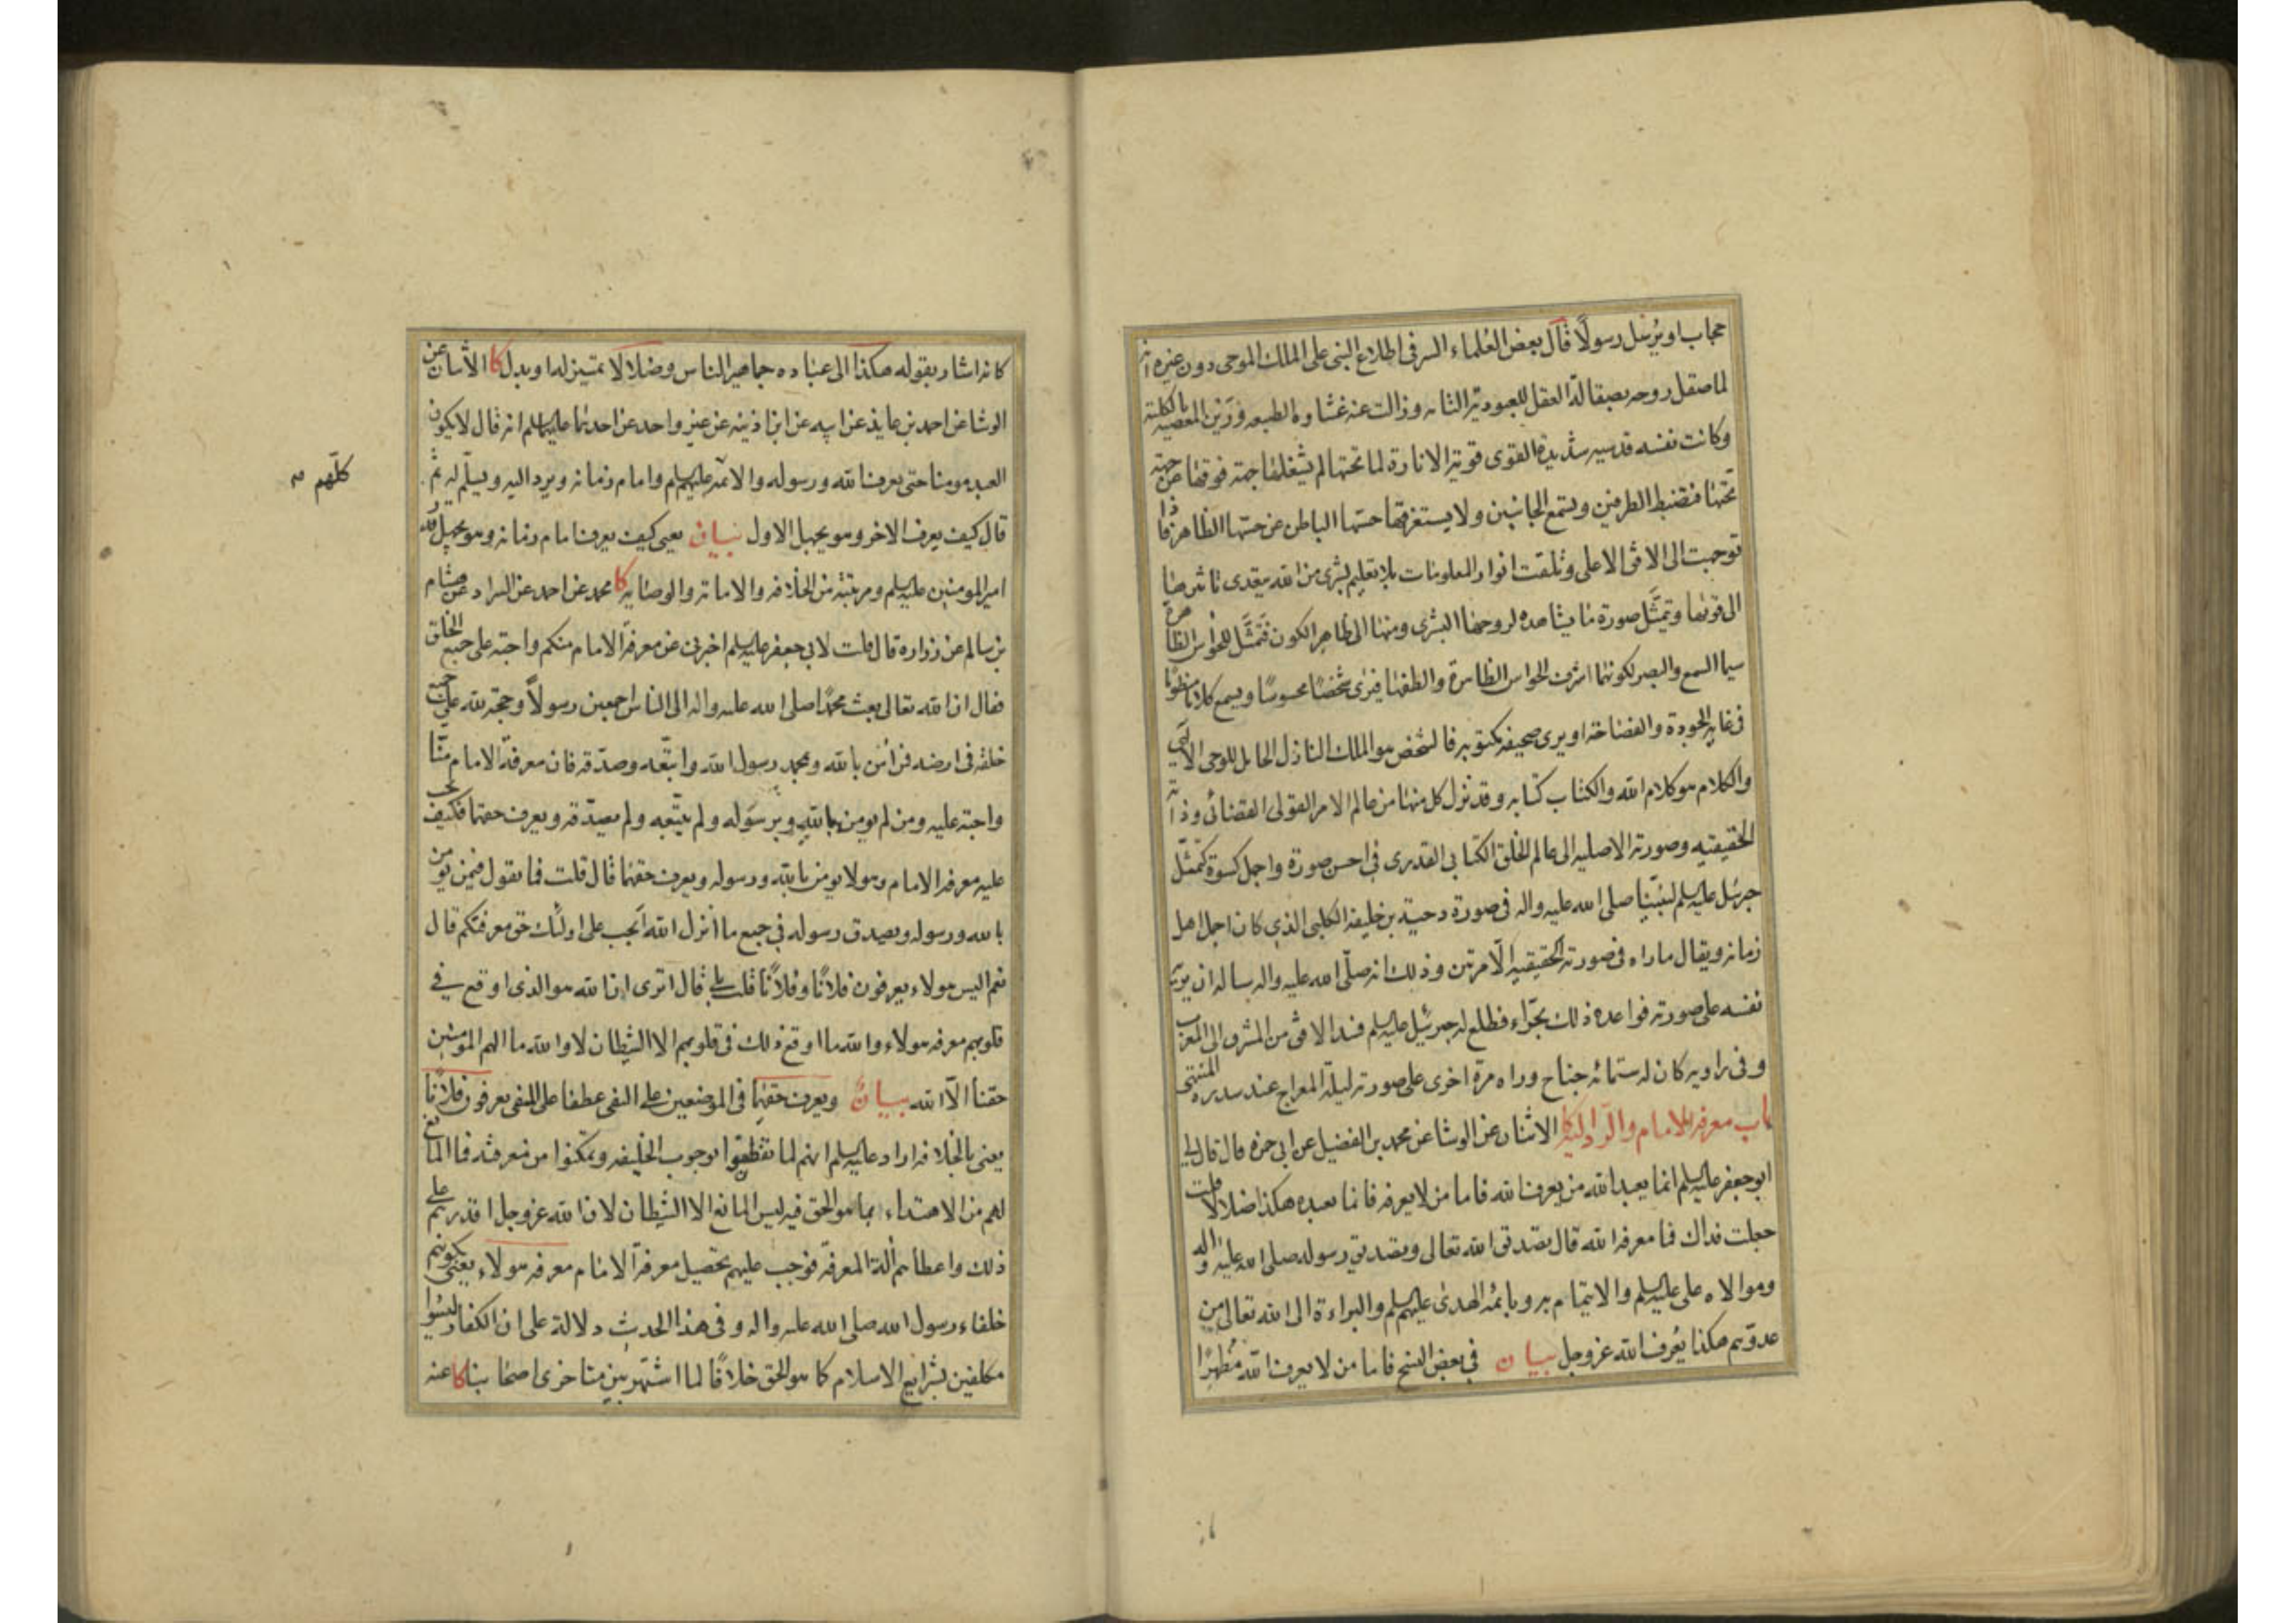 حجاب او يُرسل رسولًا قال بعض العُلماء السر في اطلاع النبي على الملك الموحى دون غيره انه
لما صقل روحه بصقالة العقل للعبودية التامة وزالت عنه غشاوة الطبيعه ورَين المعصيه بالكلية
وكانت نفسه قدسيه شديدة القوى قوية الانارة لما تحتها لم يشغلها جهة فوقها عن جهة
تحتها فتضبط الطرفين وتسع الجانبين ولا يستغرقها حسّها الباطن عن حسّها الظاهر فاذا
توجهت الى الافق الاعلى وتلقت انوار المعلومات بلا تعليم بشرى من الله يتعدى تاثيرها
الى قوتها وتمثّل صورة ما يشاهده لروحها البشرى ومنها الى ظاهر الكون فتمثّل للحواس الظاهرة
سيما السمع والبصر لكونهما اشرف الحواس الظاهرة والطفها فيَرى شخصًا محسوسًا ويسمع كلامًا منظومًا
في غاية الجودة والفصاحة او يرى صحيفة مكتوبه فالشخص هو الملك النازل الحامل للوحى الالهي
والكلام هو كلام الله والكتاب كتابه وقد نزل كل منها من عالم الامر القولى القضائى وذاته
الحقيقيه وصورته الاصليه الى عالم الخلق الكتابي القدرى في احسن صورة واجمل كسوة كتمثّل
جبرئيل عليه السلم لنبيّنا صلى الله عليه واله في صورة دحية بن خليفة الكلبي الذي كان اجمل اهل
زمانه ويقال ما راه في صورته الحقيقيه الّا مرتين وذلك انه صلّى الله عليه واله ساله ان يريه
نفسه على صورته فواعده ذلك بحَراء فطلع له جبرئيل عليه السلم فسد الافق من المشرق الى المغرب
وفي رواية كان له ستمائة جناح وراه مرة اخرى على صورته ليلة المعراج عند سدرة المنتهى
باب معرفة الامام والرد اليه كا الاثنان عن الوشا عن محمد بن الفضيل عن ابي حمزه قال قال لي
ابو جعفر عليه السلم انما يعبد الله من يعرف الله فاما من لا يعرفه فانما يعبده هكذا ضلالًا قلت
جعلت فداك فما معرفة الله قال تصديق الله تعالى وتصديق رسوله صلى الله عليه واله
وموالاه على عليه السلم والايتمام به وبائمّة الهدى عليهم السلم والبراءة الى الله تعالى من
عدوّهم هكذا يُعرف الله عز وجل بيان في بعض النسخ فاما من لا يعرف الله
كانه اشار بقوله هكذا الى عبادة جماهير الناس وضلالًا تمييز له او بدل كا الاثنان عن
الوشا عن احمد بن عايذ عن ابيه عن ابن اذينه عن غير واحد عن احدهما عليهما السلم انه قال لا يكون
العبد مومنا حتى يعرف الله ورسوله والائمه عليهم السلم وامام زمانه ويرد اليه ويسلّم له ثم
كلّهم
قال كيف يعرف الاخر وهو يجهل الاول بيان يعنى كيف يعرف امام زمانه وهو يجهل
امير المومنين عليه السلم ومرتبته من الخلافه والامامة والوصايه كا محمد عن احمد عن السراد عن هشام
بن سالم عن زراره قال قلت لابي جعفر عليه السلم اخبرني عن معرفة الامام منكم واجبة على جميع الخلق
فقال ان الله تعالى بعث محمّدًا صلى الله عليه واله الى الناس اجمعين رسولًا وحجة لله على جميع
خلقه في ارضه فمن امن بالله وبمحمد رسول الله واتّبعه وصدّقه فان معرفة الامام منّا
واجبة عليه ومن لم يومن بالله وبرسوله ولم يتّبعه ولم يصدّقه ويعرف حقهما فكيف يجب
عليه معرفة الامام وهو لا يومن بالله ورسوله ويعرف حقهما قال قلت فما تقول فيمن يومن
بالله ورسوله ويصدق رسوله في جميع ما أنزل الله أيجب على اولئك حق معرفتكم قال
نعم اليس هولاء يعرفون فلانًا وفلانًا قلت بلى قال اترى ان الله هو الذى اوقع في
قلوبهم معرفة هولاء والله ما اوقع ذلك في قلوبهم الا الشيطان لا والله ما الهم المومنين
حقنا الّا الله بيان ويعرف حقهما في الموضعين على النفى عطفا على المنفى يعرفون فلانًا
يعنى بالخلافة اراد عليه السلم انهم لما تفطّنوا بوجوب الخليفه وتمكّنوا من معرفته فما المانع
لهم من الاهتداء بما هو الحق فيه ليس المانع الا الشيطان لان الله عز وجل اقدرهم على
ذلك واعطاهم ألة المعرفة فوجب عليهم تحصيل معرفة الامام معرفة هولاء يعنى بكونهم
خلفاء رسول الله صلى الله عليه واله وفي هذا الحديث دلالة على ان الكفار ليسوا
مكلفين بشرايع الاسلام كما هو الحق خلافًا لما اشتهر بين متاخرى اصحابنا كا عنه